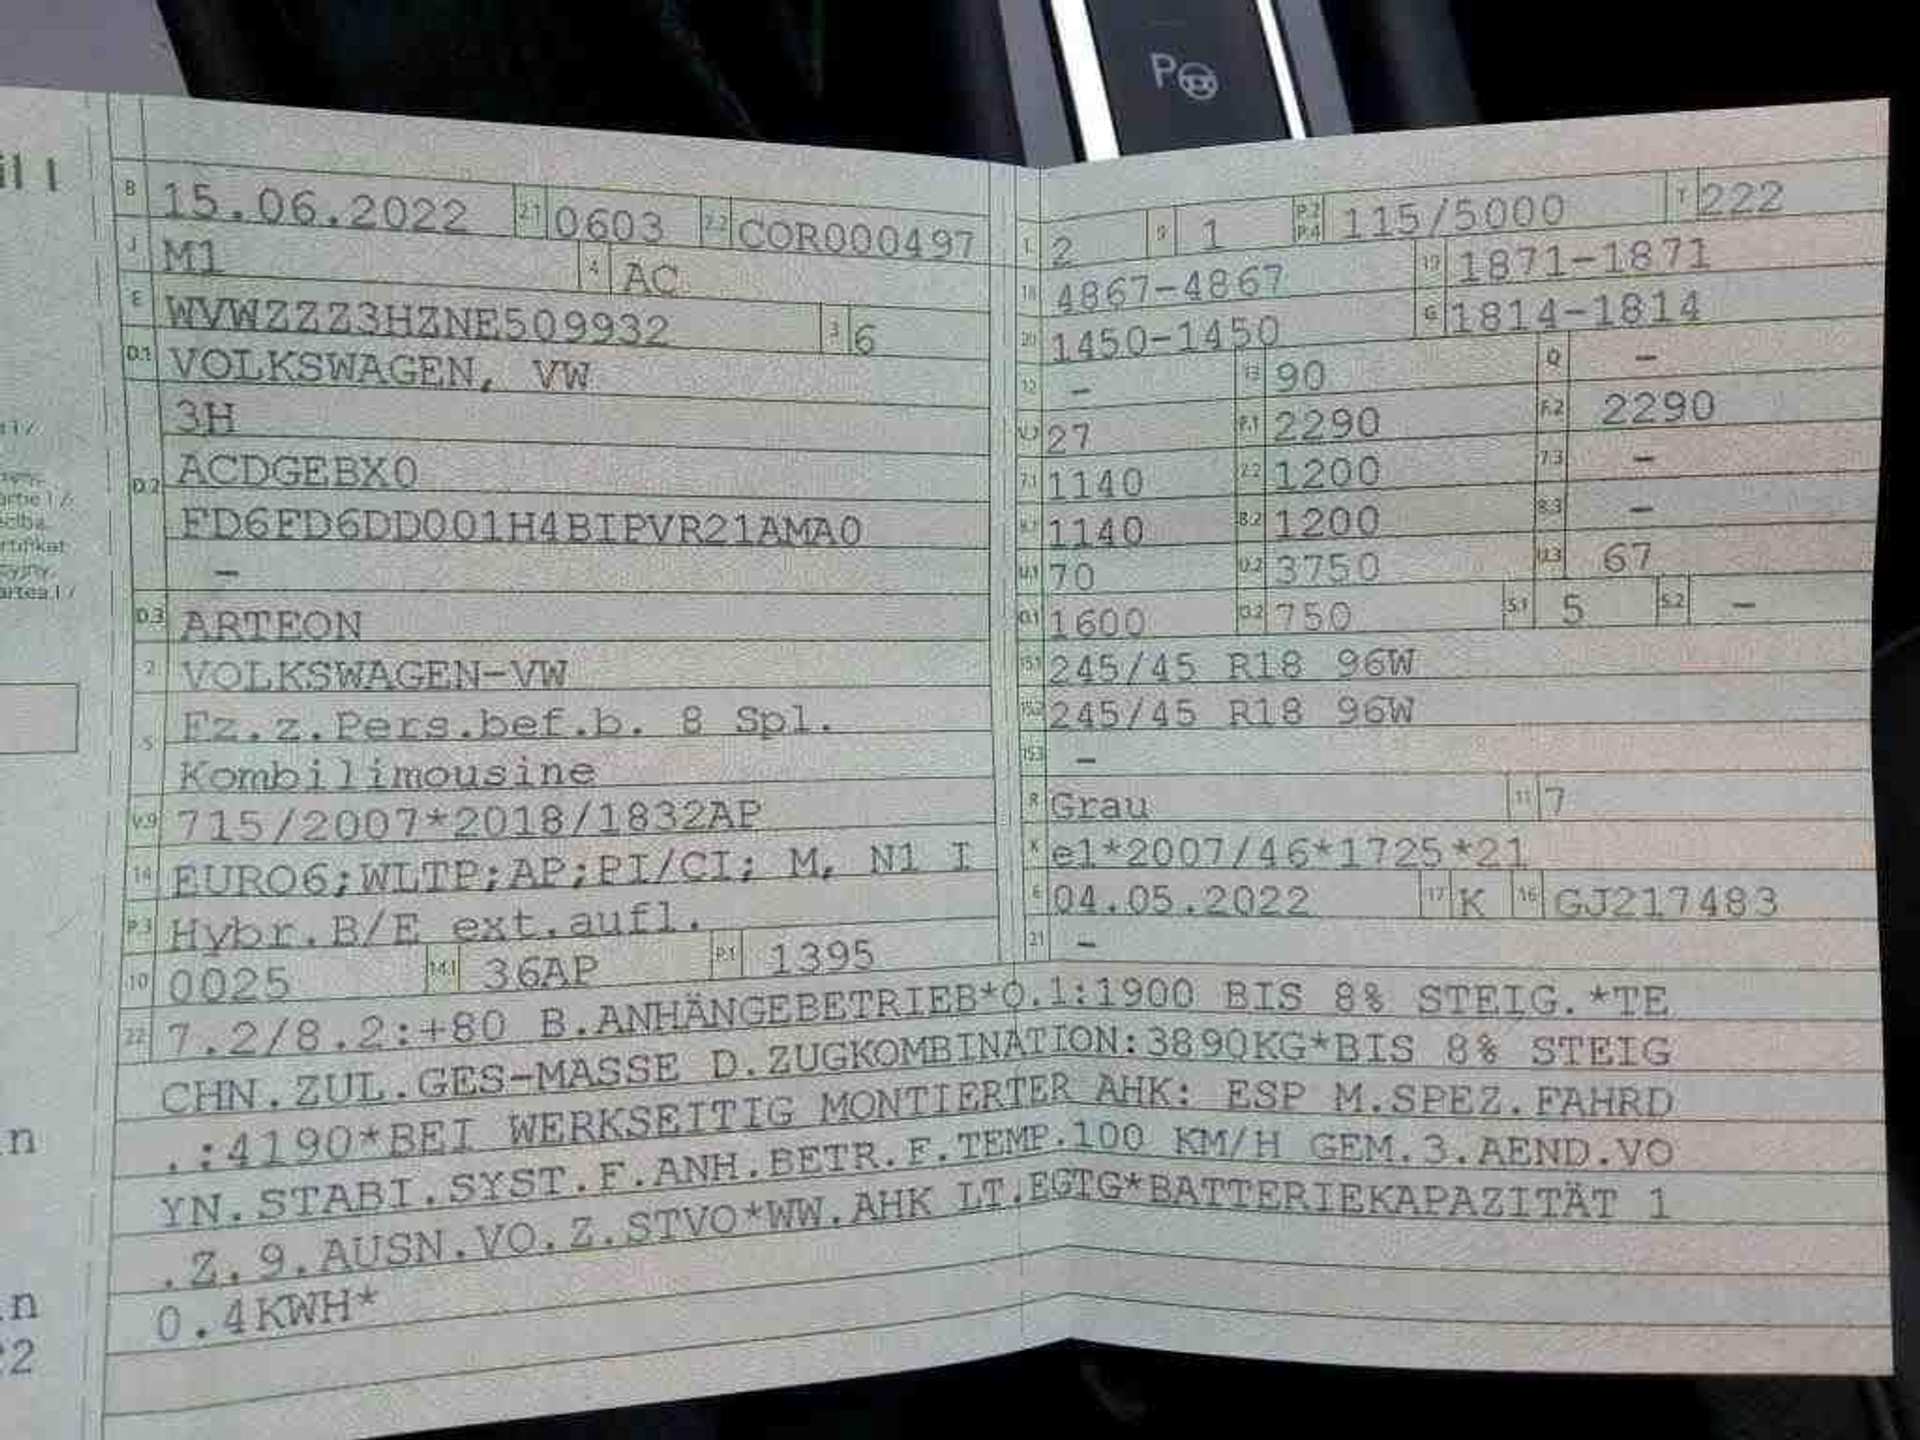 il I
B 15.06.2022 2.1 0603 2.2 COR000497
J M1 4 AC
E WVWZZZ3HZNE509932 3 6
D.1 VOLKSWAGEN, VW
3H
D.2 ACDGEBX0
FD6FD6DD001H4BIPVR21AMA0
–
D.3 ARTEON
2 VOLKSWAGEN-VW
5 Fz.z.Pers.bef.b. 8 Spl.
Kombilimousine
V.9 715/2007*2018/1832AP
14 EURO6;WLTP;AP;PI/CI; M, N1 I
P.3 Hybr.B/E ext.aufl.
10 0025 14.1 36AP P.1 1395
L 2 9 1 P.2 P.4 115/5000 T 222
18 4867-4867 19 1871-1871
20 1450-1450 G 1814-1814
12 – 13 90 Q –
V.7 27 F.1 2290 F.2 2290
7.1 1140 7.2 1200 7.3 –
8.1 1140 8.2 1200 8.3 –
U.1 70 U.2 3750 U.3 67
O.1 1600 O.2 750 S.1 5 S.2 –
15.1 245/45 R18 96W
15.2 245/45 R18 96W
15.3 –
R Grau 11 7
K e1*2007/46*1725*21
6 04.05.2022 17 K 16 GJ217483
21 –
22 7.2/8.2:+80 B.ANHÄNGEBETRIEB*O.1:1900 BIS 8% STEIG.*TE
CHN.ZUL.GES-MASSE D.ZUGKOMBINATION:3890KG*BIS 8% STEIG
.:4190*BEI WERKSEITIG MONTIERTER AHK: ESP M.SPEZ.FAHRD
YN.STABI.SYST.F.ANH.BETR.F.TEMP.100 KM/H GEM.3.AEND.VO
.Z.9.AUSN.VO.Z.STVO*WW.AHK LT.EGTG*BATTERIEKAPAZITÄT 1
0.4KWH*
P